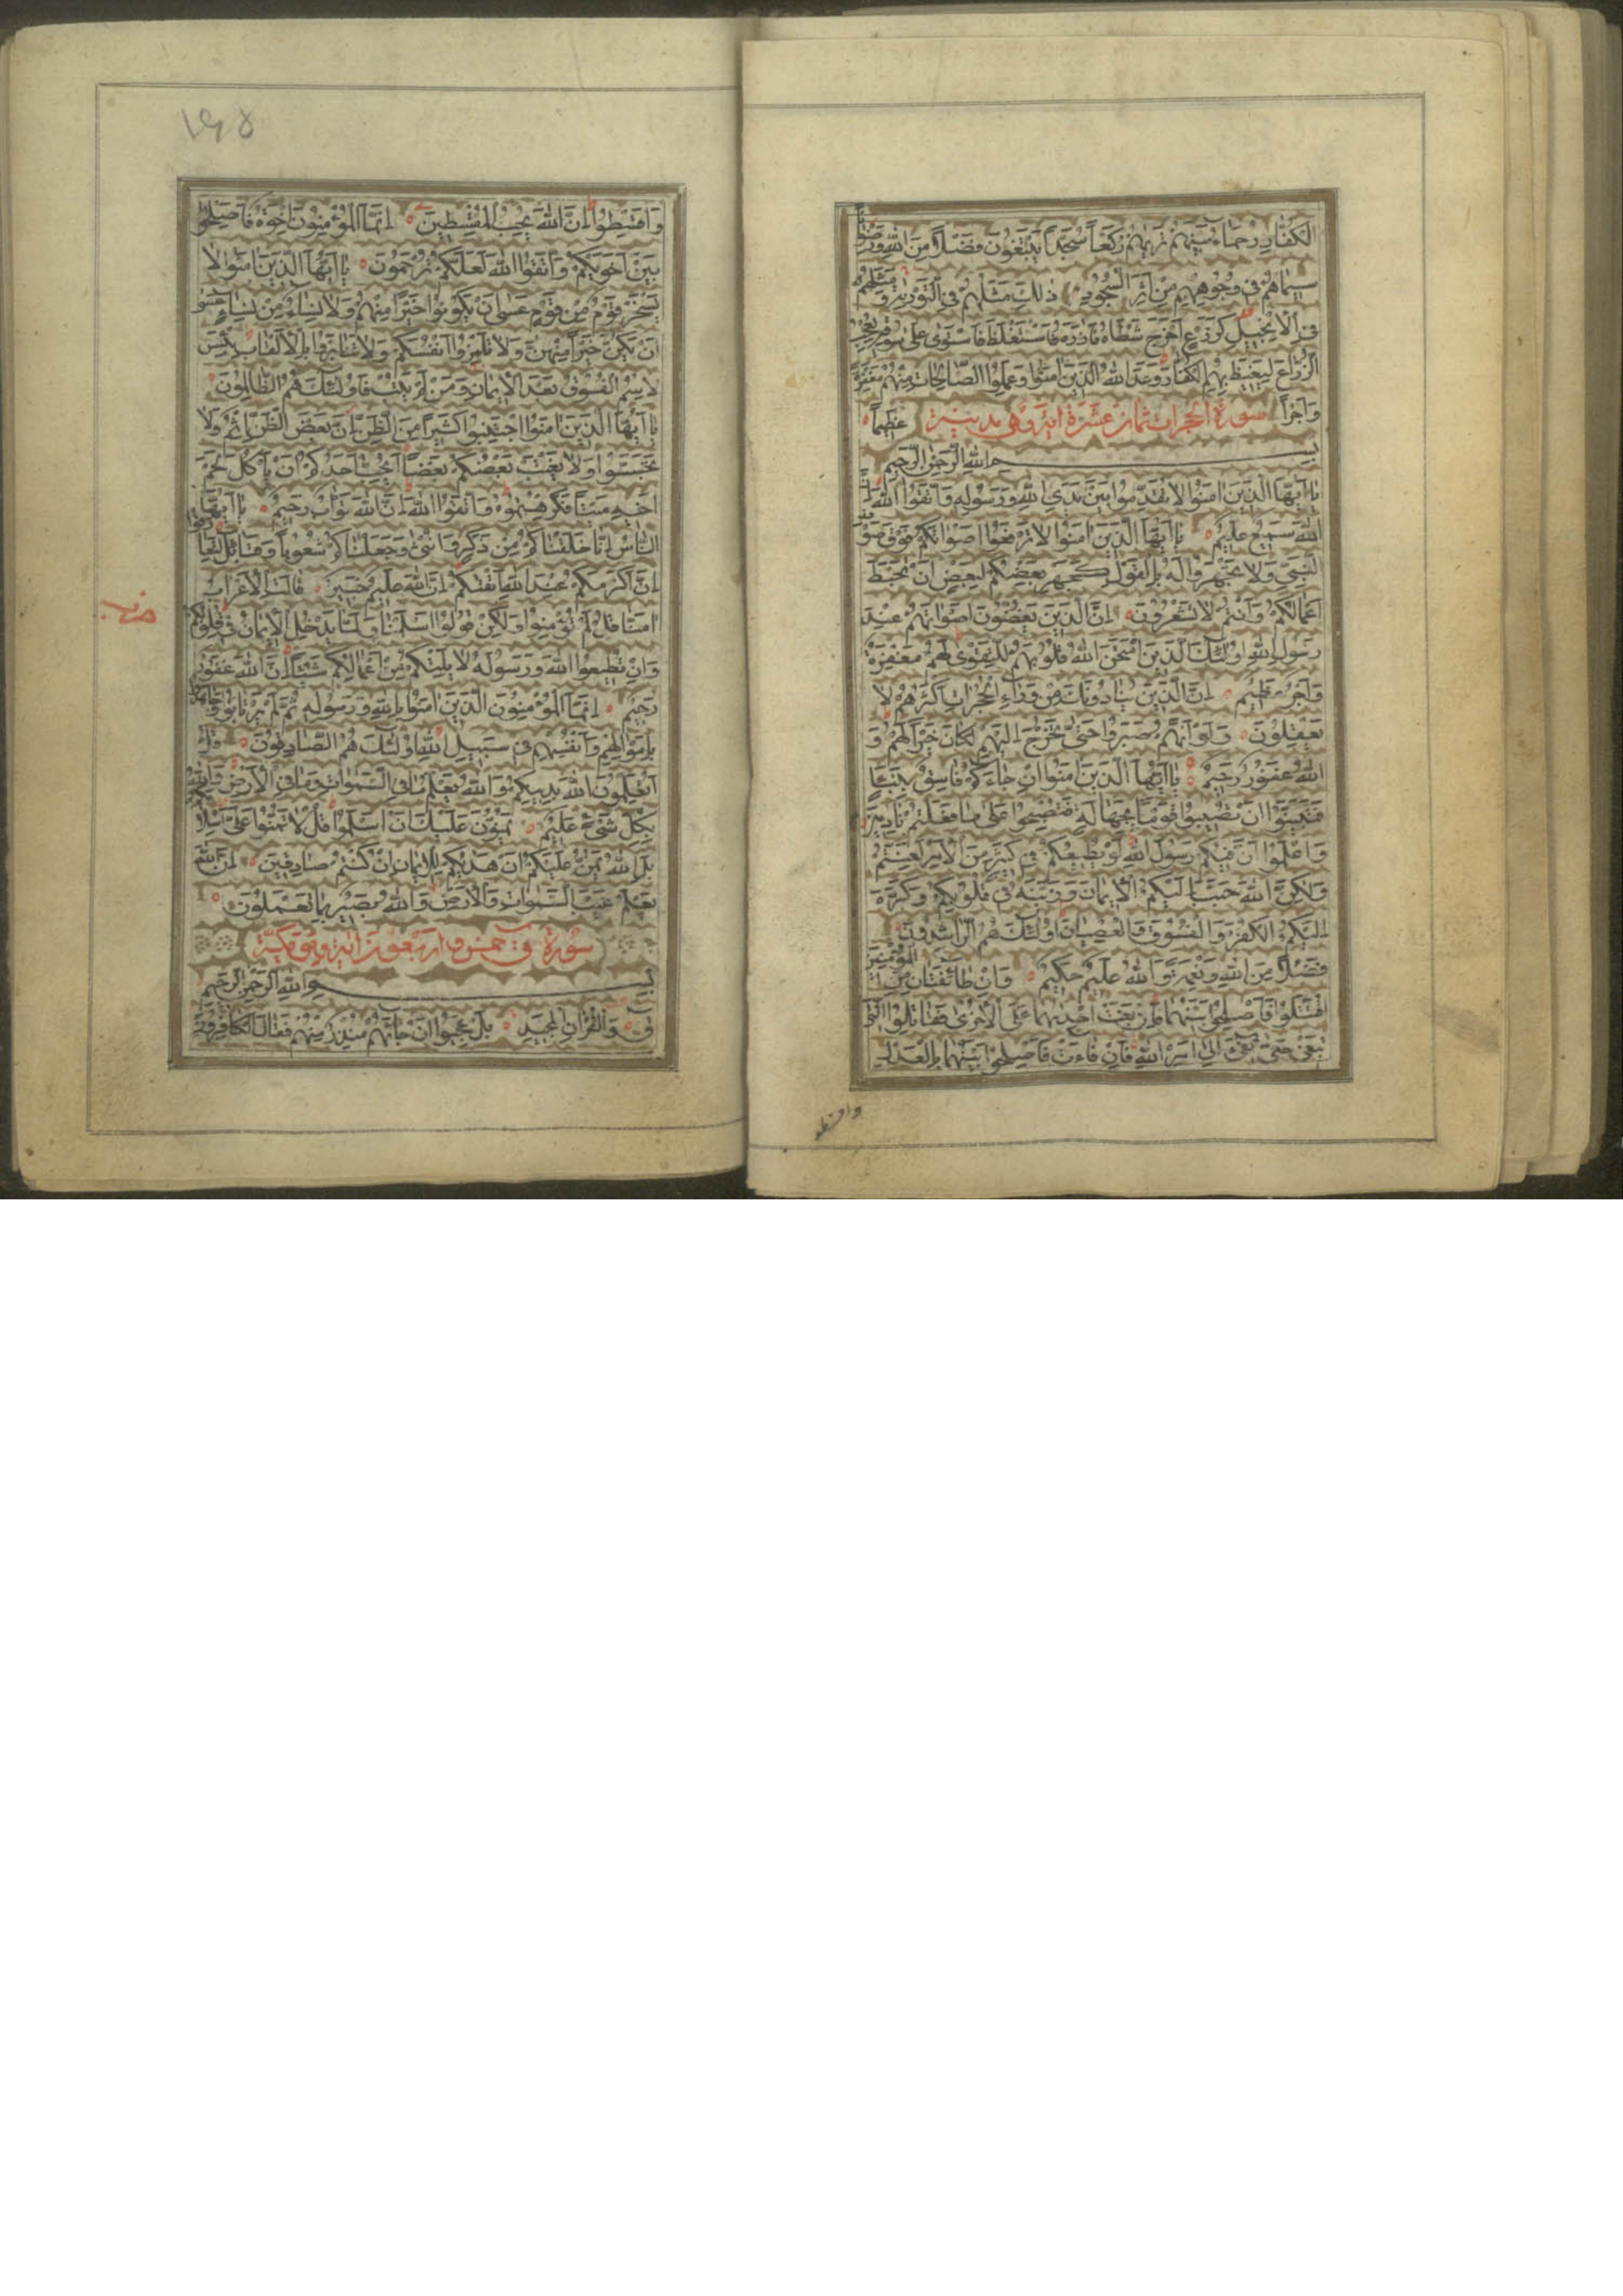 الكُفّارِ رُحَماءُ بَينَهُم تَريهُم رُكَّعاً سُجَّداً يَبتَغُونَ فَضلاً مِنَ اللهِ وَرِضواناً
سيماهُم في وُجُوهِهِم مِن اَثَرِ السُّجُودِ ذلِكَ مَثَلُهُم فِي التَّوريةِ وَمَثَلُهُم
فِي الاِنجيلِ كَزَرعٍ اَخرَجَ شَطاَهُ فَازَرَهُ فَاستَغلَظَ فَاستَوى عَلى سُوقِهِ يُعجِبُ
الزُّرّاعَ لِيَغيظَ بِهِمُ الكُفّارَ وَعَدَ اللهُ الَّذينَ امَنُوا وَعَمِلُوا الصّالِحاتِ مِنهُم مَغفِرَةً
وَاَجراً عَظيماً سورة الحجرات ثمان عشرة اية وهي مدنية
بسم الله الرحمن الرحيم
يا اَيُّهَا الَّذينَ امَنُوا لا تُقَدِّمُوا بَينَ يَدَيِ اللهِ وَرَسُولِهِ وَاتَّقُوا اللهَ اِنَّ
اللهَ سَميعٌ عَليمٌ يا اَيُّهَا الَّذينَ امَنُوا لا تَرفَعُوا اَصواتَكُم فَوقَ صَوتِ
النَّبِيِّ وَلا تَجهَرُوا لَهُ بِالقَولِ كَجَهرِ بَعضِكُم لِبَعضٍ اَن تَحبَطَ
اَعمالُكُم وَاَنتُم لا تَشعُرُونَ اِنَّ الَّذينَ يَغُضُّونَ اَصواتَهُم عِندَ
رَسُولِ اللهِ اُولئِكَ الَّذينَ امتَحَنَ اللهُ قُلُوبَهُم لِلتَّقوى لَهُم مَغفِرَةٌ
وَاَجرٌ عَظيمٌ اِنَّ الَّذينَ يُنادُونَكَ مِن وَراءِ الحُجُراتِ اَكثَرُهُم لا
يَعقِلُونَ وَلَو اَنَّهُم صَبَرُوا حَتّى تَخرُجَ اِلَيهِم لَكانَ خَيراً لَهُم وَ
اللهُ غَفُورٌ رَحيمٌ يا اَيُّهَا الَّذينَ امَنُوا اِن جاءَكُم فاسِقٌ بِنَبَاٍ
فَتَبَيَّنُوا اَن تُصيبُوا قَوماً بِجَهالَةٍ فَتُصبِحُوا عَلى ما فَعَلتُم نادِمينَ
وَاعلَمُوا اَنَّ فيكُم رَسُولَ اللهِ لَو يُطيعُكُم في كَثيرٍ مِنَ الاَمرِ لَعَنِتُّم
وَلكِنَّ اللهَ حَبَّبَ اِلَيكُمُ الاِيمانَ وَزَيَّنَهُ في قُلُوبِكُم وَكَرَّهَ
اِلَيكُمُ الكُفرَ وَالفُسُوقَ وَالعِصيانَ اُولئِكَ هُمُ الرّاشِدُونَ
فَضلاً مِنَ اللهِ وَنِعمَةً وَاللهُ عَليمٌ حَكيمٌ وَاِن طائِفَتانِ مِنَ المُؤمِنينَ
اقتَتَلُوا فَاَصلِحُوا بَينَهُما فَاِن بَغَت اِحديهُما عَلَى الاُخرى فَقاتِلُوا الَّتي
تَبغي حَتّى تَفيءَ اِلى اَمرِ اللهِ فَاِن فاءَت فَاَصلِحُوا بَينَهُما بِالعَدلِ
واقسطو
١٦٥
وَاَقسِطُوا اِنَّ اللهَ يُحِبُّ المُقسِطينَ اِنَّمَا المُؤمِنُونَ اِخوَةٌ فَاَصلِحُوا
بَينَ اَخَوَيكُم وَاتَّقُوا اللهَ لَعَلَّكُم تُرحَمُونَ يا اَيُّهَا الَّذينَ امَنُوا لا
يَسخَر قَومٌ مِن قَومٍ عَسى اَن يَكُونُوا خَيراً مِنهُم وَلا نِساءٌ مِن نِساءٍ عَسى
اَن يَكُنَّ خَيراً مِنهُنَّ وَلا تَلمِزُوا اَنفُسَكُم وَلا تَنابَزُوا بِالاَلقابِ بِئسَ
الاِسمُ الفُسُوقُ بَعدَ الاِيمانِ وَمَن لَم يَتُب فَاُولئِكَ هُمُ الظّالِمُونَ
يا اَيُّهَا الَّذينَ امَنُوا اجتَنِبُوا كَثيراً مِنَ الظَّنِّ اِنَّ بَعضَ الظَّنِّ اِثمٌ وَلا
تَجَسَّسُوا وَلا يَغتَب بَعضُكُم بَعضاً اَيُحِبُّ اَحَدُكُم اَن يَأكُلَ لَحمَ
اَخيهِ مَيتاً فَكَرِهتُمُوهُ وَاتَّقُوا اللهَ اِنَّ اللهَ تَوّابٌ رَحيمٌ يا اَيُّهَا
النّاسُ اِنّا خَلَقناكُم مِن ذَكَرٍ وَاُنثى وَجَعَلناكُم شُعُوباً وَقَبائِلَ لِتَعارَفُوا
اِنَّ اَكرَمَكُم عِندَ اللهِ اَتقيكُم اِنَّ اللهَ عَليمٌ خَبيرٌ قالَتِ الاَعرابُ
امَنّا قُل لَم تُؤمِنُوا وَلكِن قُولُوا اَسلَمنا وَلَمّا يَدخُلِ الاِيمانُ في قُلُوبِكُم
وَاِن تُطيعُوا اللهَ وَرَسُولَهُ لا يَلِتكُم مِن اَعمالِكُم شَيئاً اِنَّ اللهَ غَفُورٌ
رَحيمٌ اِنَّمَا المُؤمِنُونَ الَّذينَ امَنُوا بِاللهِ وَرَسُولِهِ ثُمَّ لَم يَرتابُوا وَجاهَدُوا
بِاَموالِهِم وَاَنفُسِهِم في سَبيلِ اللهِ اُولئِكَ هُمُ الصّادِقُونَ قُل
اَتُعَلِّمُونَ اللهَ بِدينِكُم وَاللهُ يَعلَمُ ما فِي السَّمواتِ وَما فِي الاَرضِ وَاللهُ
بِكُلِّ شَيءٍ عَليمٌ يَمُنُّونَ عَلَيكَ اَن اَسلَمُوا قُل لا تَمُنُّوا عَلَيَّ اِسلامَكُم
بَلِ اللهُ يَمُنُّ عَلَيكُم اَن هَديكُم لِلاِيمانِ اِن كُنتُم صادِقينَ اِنَّ اللهَ
يَعلَمُ غَيبَ السَّمواتِ وَالاَرضِ وَاللهُ بَصيرٌ بِما تَعمَلُونَ
سورة ق خمس واربعون اية وهي مكية
بسم الله الرحمن الرحيم
ق وَالقُرانِ المَجيدِ بَل عَجِبُوا اَن جاءَهُم مُنذِرٌ مِنهُم فَقالَ الكافِرُونَ